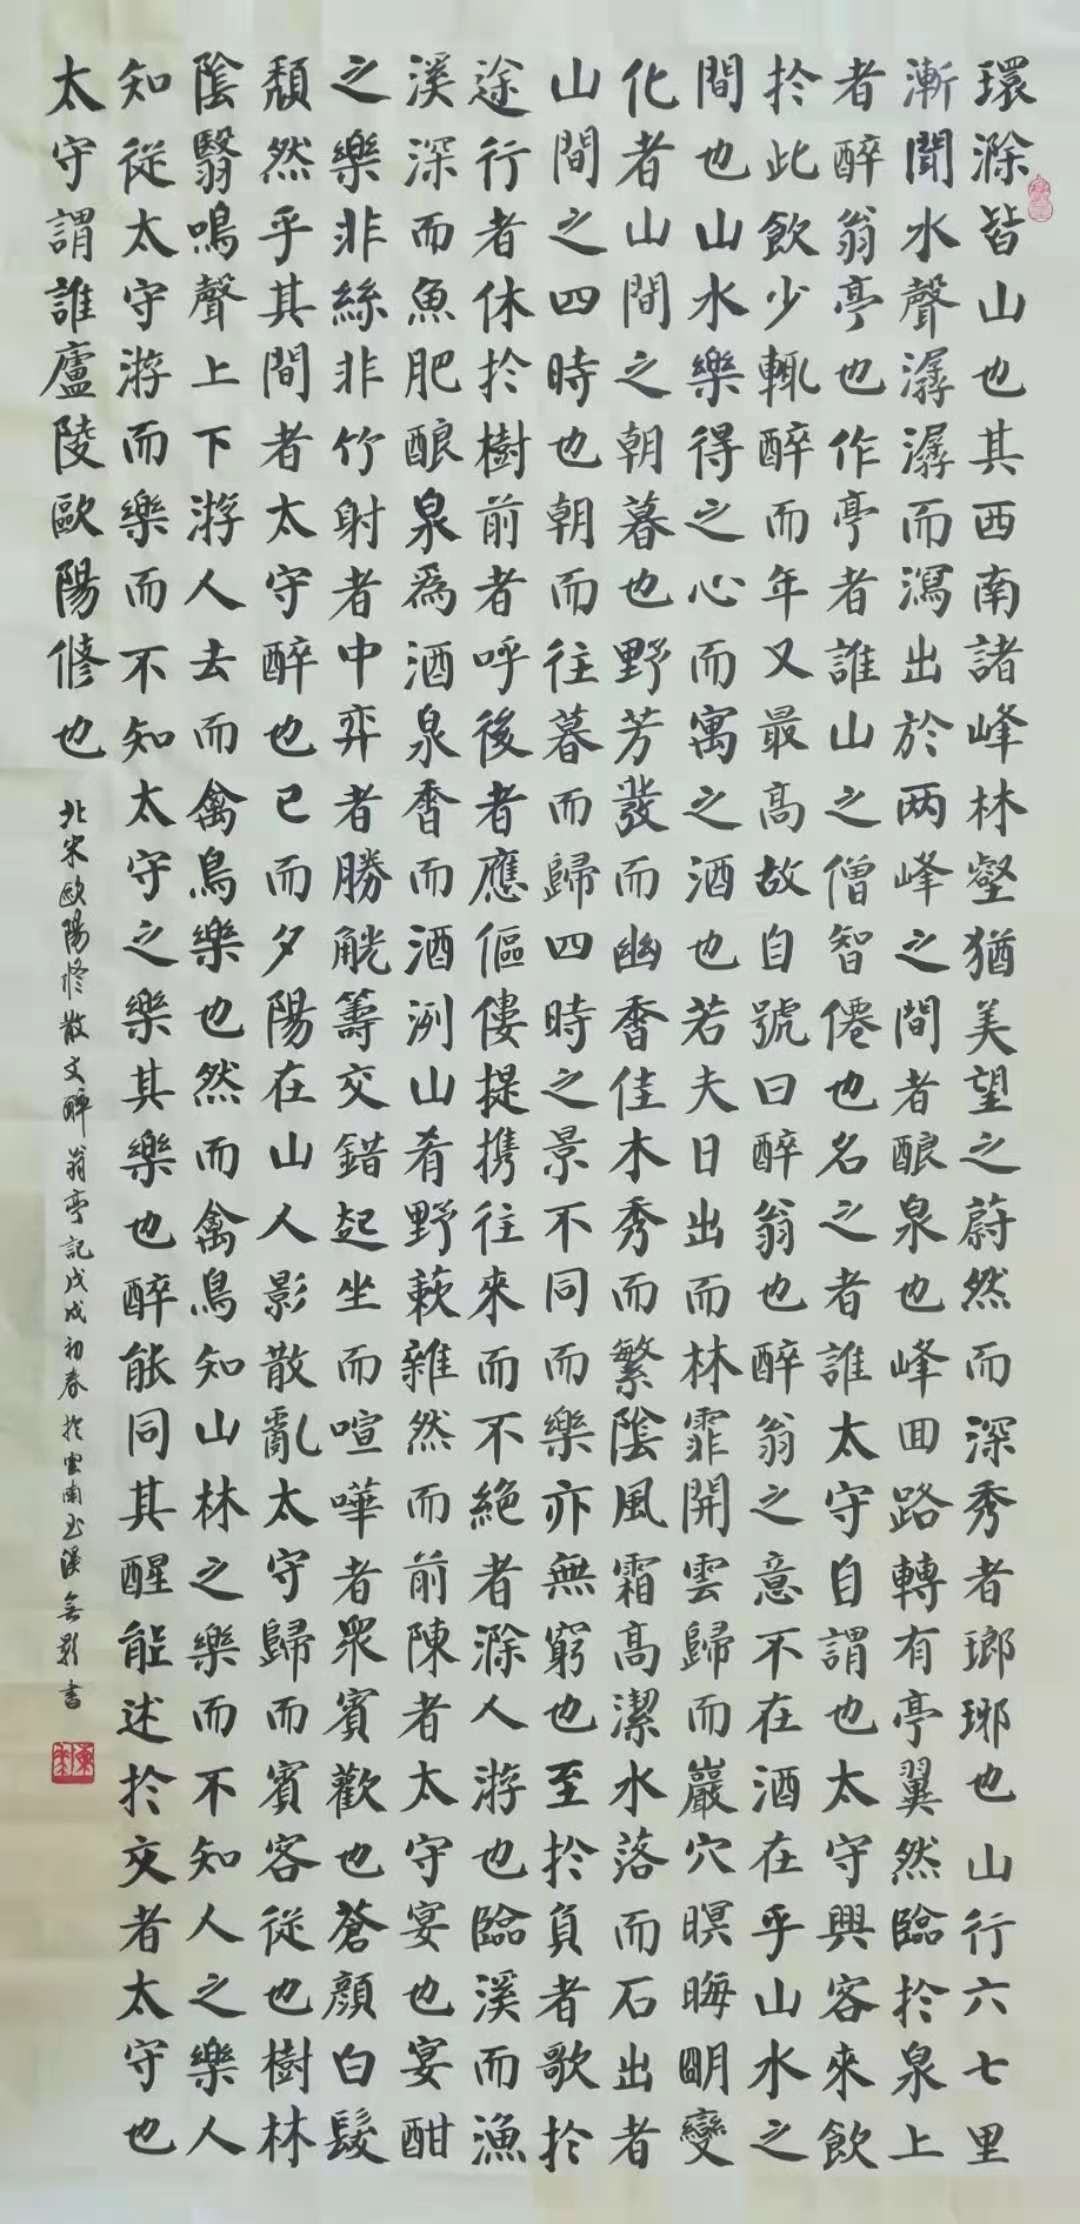 環滁皆山也其西南諸峰林壑猶美望之蔚然而深秀者瑯琊也山行六七里
漸聞水聲潺潺而瀉出於两峰之間者酿泉也峰回路轉有亭翼然臨於泉上
者醉翁亭也作亭者誰山之僧智僊也名之者誰太守自謂也太守與客來飲
於此飲少輒醉而年又最高故自號曰醉翁也醉翁之意不在酒在乎山水之
間也山水樂得之心而寓之酒也若夫日出而林霏開雲歸而巖穴暝晦明變
化者山間之朝暮也野芳發而幽香佳木秀而繁陰風霜高潔水落而石出者
山間之四時也朝而往暮而歸四時之景不同而樂亦無窮也至於負者歌於
途行者休於樹前者呼後者應傴僂提携往來而不絕者滁人游也臨溪而漁
溪深而魚肥酿泉為酒泉香而酒洌山肴野蔌雜然而前陳者太守宴也宴酣
之樂非絲非竹射者中弈者勝觥籌交錯起坐而喧嘩者眾賓歡也蒼顏白髮
頹然乎其間者太守醉也已而夕陽在山人影散亂太守歸而賓客從也樹林
陰翳鳴聲上下游人去而禽鳥樂也然而禽鳥知山林之樂而不知人之樂人
知從太守游而樂而不知太守之樂其樂也醉能同其醒能述於文者太守也
太守謂誰廬陵歐陽修也
北宋歐陽修散文醉翁亭記戊戌初春於雲南玉溪無影書